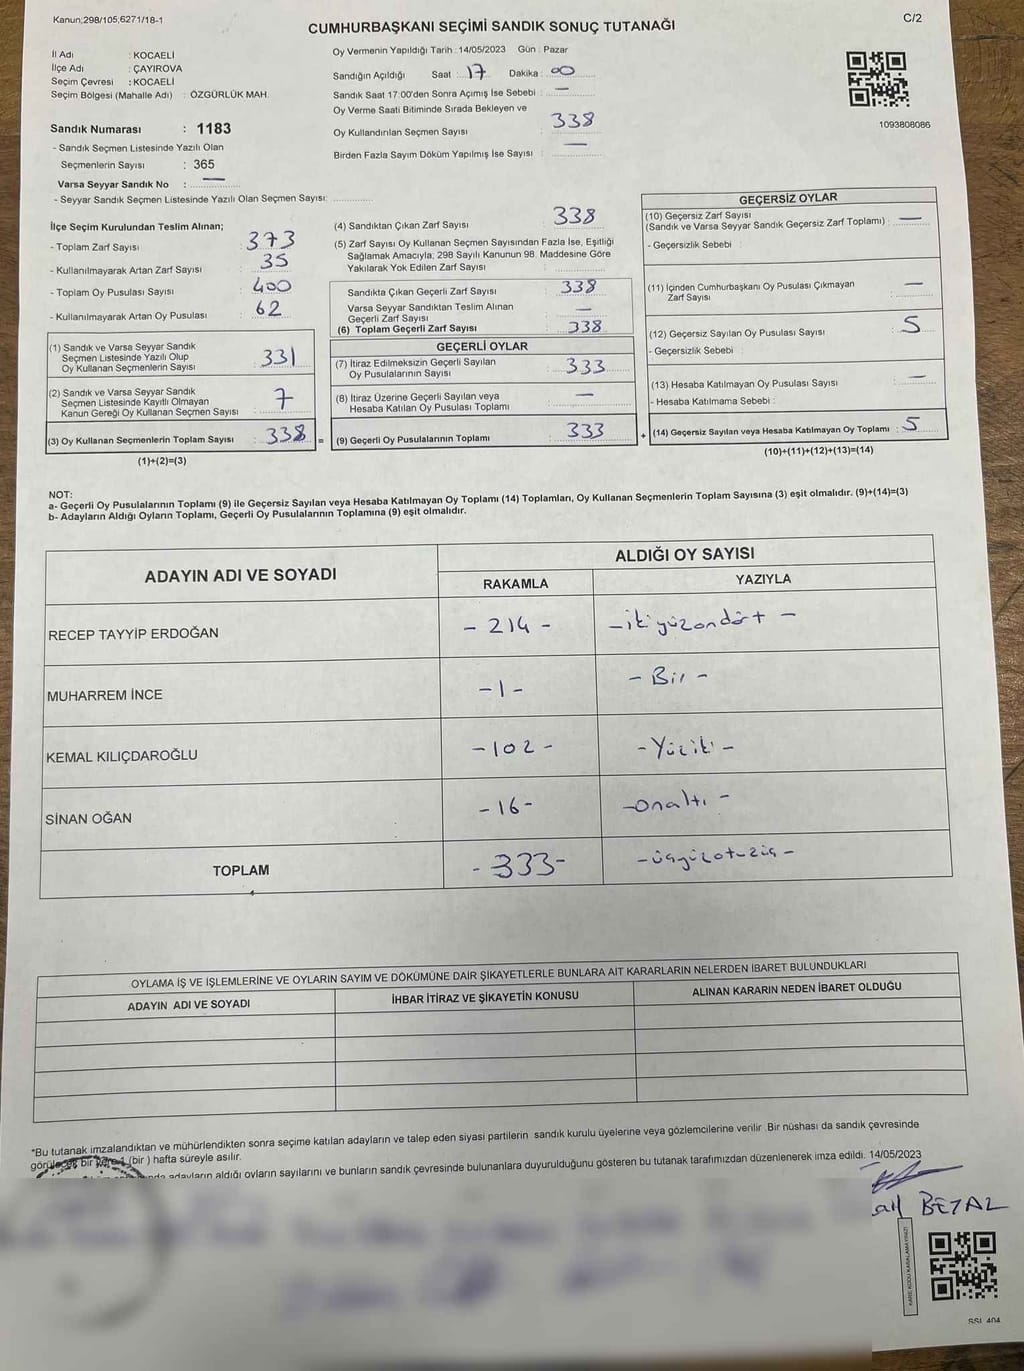 Kanun;298/105;6271/18-1
C/2
CUMHURBAŞKANI SEÇİMİ SANDIK SONUÇ TUTANAĞI
İl Adı : KOCAELİ
İlçe Adı : ÇAYIROVA
Seçim Çevresi : KOCAELİ
Seçim Bölgesi (Mahalle Adı) : ÖZGÜRLÜK MAH.
Sandık Numarası : 1183
- Sandık Seçmen Listesinde Yazılı Olan
Seçmenlerin Sayısı : 365
Varsa Seyyar Sandık No : —
- Seyyar Sandık Seçmen Listesinde Yazılı Olan Seçmen Sayısı:
Oy Vermenin Yapıldığı Tarih :14/05/2023 Gün : Pazar
Sandığın Açıldığı Saat : 17 Dakika : 00
Sandık Saat 17:00'den Sonra Açımış İse Sebebi : —
Oy Verme Saati Bitiminde Sırada Bekleyen ve
Oy Kullandırılan Seçmen Sayısı : 338
Birden Fazla Sayım Döküm Yapılmış İse Sayısı : —
1093808086
İlçe Seçim Kurulundan Teslim Alınan;
- Toplam Zarf Sayısı : 373
- Kullanılmayarak Artan Zarf Sayısı : 35
- Toplam Oy Pusulası Sayısı : 400
- Kullanılmayarak Artan Oy Pusulası : 62
(1) Sandık ve Varsa Seyyar Sandık
Seçmen Listesinde Yazılı Olup
Oy Kullanan Seçmenlerin Sayısı : 331
(2) Sandık ve Varsa Seyyar Sandık
Seçmen Listesinde Kayıtlı Olmayan
Kanun Gereği Oy Kullanan Seçmen Sayısı : 7
(3) Oy Kullanan Seçmenlerin Toplam Sayısı : 338 =
(1)+(2)=(3)
(4) Sandıktan Çıkan Zarf Sayısı : 338
(5) Zarf Sayısı Oy Kullanan Seçmen Sayısından Fazla İse, Eşitliği
Sağlamak Amacıyla; 298 Sayılı Kanunun 98. Maddesine Göre
Yakılarak Yok Edilen Zarf Sayısı :
Sandıkta Çıkan Geçerli Zarf Sayısı : 338
Varsa Seyyar Sandıktan Teslim Alınan
Geçerli Zarf Sayısı : —
(6) Toplam Geçerli Zarf Sayısı : 338
GEÇERLİ OYLAR
(7) İtiraz Edilmeksizin Geçerli Sayılan
Oy Pusulalarının Sayısı : 333
(8) İtiraz Üzerine Geçerli Sayılan veya
Hesaba Katılan Oy Pusulası Toplamı : —
(9) Geçerli Oy Pusulalarının Toplamı : 333 +
GEÇERSİZ OYLAR
(10) Geçersiz Zarf Sayısı
(Sandık ve Varsa Seyyar Sandık Geçersiz Zarf Toplamı) : —
- Geçersizlik Sebebi :
(11) İçinden Cumhurbaşkanı Oy Pusulası Çıkmayan
Zarf Sayısı : —
(12) Geçersiz Sayılan Oy Pusulası Sayısı : 5
- Geçersizlik Sebebi :
(13) Hesaba Katılmayan Oy Pusulası Sayısı : —
- Hesaba Katılmama Sebebi :
(14) Geçersiz Sayılan veya Hesaba Katılmayan Oy Toplamı : 5
(10)+(11)+(12)+(13)=(14)
NOT:
a- Geçerli Oy Pusulalarının Toplamı (9) ile Geçersiz Sayılan veya Hesaba Katılmayan Oy Toplamı (14) Toplamları, Oy Kullanan Seçmenlerin Toplam Sayısına (3) eşit olmalıdır. (9)+(14)=(3)
b- Adayların Aldığı Oyların Toplamı, Geçerli Oy Pusulalarının Toplamına (9) eşit olmalıdır.
ADAYIN ADI VE SOYADI ALDIĞI OY SAYISI
RAKAMLA YAZIYLA
RECEP TAYYİP ERDOĞAN - 214 - - ikiyüzondört -
MUHARREM İNCE - 1 - - Bir -
KEMAL KILIÇDAROĞLU - 102 - - Yüziki -
SİNAN OĞAN - 16 - - onaltı -
TOPLAM - 333 - - üçyüzotuzüç -
OYLAMA İŞ VE İŞLEMLERİNE VE OYLARIN SAYIM VE DÖKÜMÜNE DAİR ŞİKAYETLERLE BUNLARA AİT KARARLARIN NELERDEN İBARET BULUNDUKLARI
ADAYIN ADI VE SOYADI İHBAR İTİRAZ VE ŞİKAYETİN KONUSU ALINAN KARARIN NEDEN İBARET OLDUĞU
*Bu tutanak imzalandıktan ve mühürlendikten sonra seçime katılan adayların ve talep eden siyasi partilerin sandık kurulu üyelerine veya gözlemcilerine verilir .Bir nüshası da sandık çevresinde
görülecek bir yere 1 (bir ) hafta süreyle asılır.
adayların aldığı oyların sayılarını ve bunların sandık çevresinde bulunanlara duyurulduğunu gösteren bu tutanak tarafımızdan düzenlenerek imza edildi. 14/05/2023
BEYAZ
KARE KODU KARALAMAYINIZ!